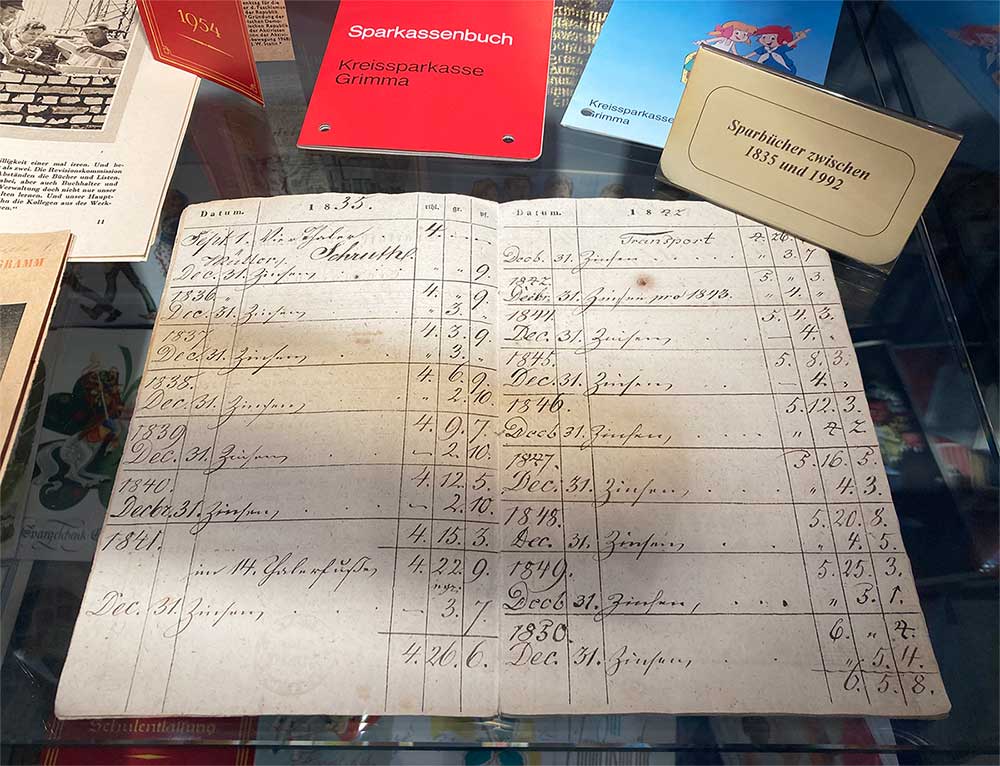 1954
Sparkassenbuch
Kreissparkasse
Grimma
Kreissparkasse
Grimma
Sparbücher zwischen
1835 und 1992
willigkeit einer mal irren. Und be-
als zwei. Die Revisionskommission
Abständen die Bücher und Listen.
dabei, aber auch Buchhalter und
Verwaltung doch nicht nur unser
lten lernen. Und unser Haupt-
hn die Kollegen aus der Werk-
en."
11
GRAMM
Datum. 1835. rthl. gr. pf.
Sept. 1. Vier Thaler 4. — —
Dec. 31. Zinsen " " 9.
1836. 4. " 9.
Dec. 31. Zinsen " 3. "
1837. 4. 3. 9.
Dec. 31. Zinsen " 3. "
1838. 4. 6. 9.
Dec. 31. Zinsen, " 2. 10.
1839. 4. 9. 7.
Dec. 31. Zinsen — 2. 10.
1840. 4. 12. 5.
Decbr. 31. Zinsen, — 2. 10.
1841. 4. 15. 3.
im 14. Thalerfuße, 4. 22. 9.
ngr.
Dec. 31. Zinsen, — 3. 7.
4. 26. 6.
Datum. 1842
Transport 4. 26.
Decb. 31. Zinsen " 3. 7
5. " 3.
Decbr. 31. Zinsen pro 1843. " 4. "
1844 5. 4. 3.
Dec. 31. Zinsen — 4. "
1845. 5. 8. 3.
Dec. 31. Zinsen — 4. "
1846. 5. 12. 3.
Decb 31. Zinsen, " 4. 2.
1847. 5. 16. 5.
Dec. 31. Zinsen, " 4. 3.
1848. 5. 20. 8.
Dec. 31. Zinsen, " 4. 5.
1849. 5. 25. 3.
Decb 31. Zinsen, " 5. 1.
1850. 6. " 4.
Dec. 31. Zinsen " 5. 4.
6. 5. 8.
Schulentlassung